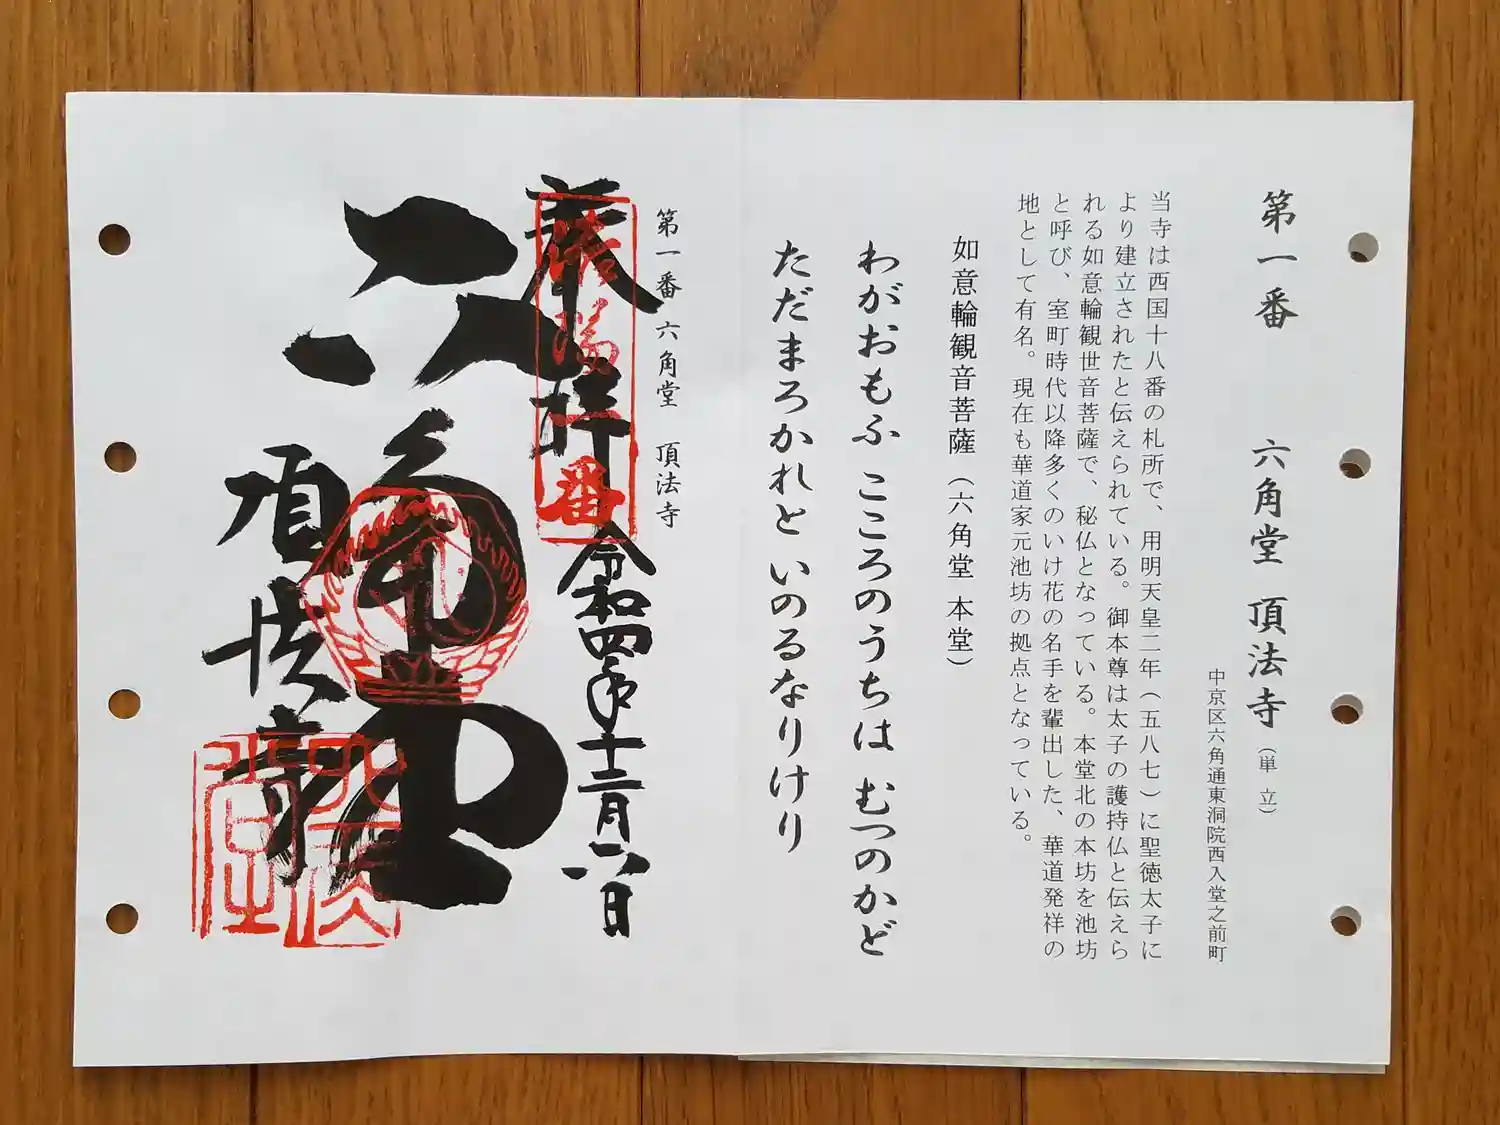 第一番 六角堂 頂法寺（単立）
中京区六角通東洞院西入堂之前町
当寺は西国十八番の札所で、用明天皇二年（五八七）に聖徳太子に
より建立されたと伝えられている。御本尊は太子の護持仏と伝えら
れる如意輪観世音菩薩で、秘仏となっている。本堂北の本坊を池坊
と呼び、室町時代以降多くのいけ花の名手を輩出した、華道発祥の
地として有名。現在も華道家元池坊の拠点となっている。
如意輪観音菩薩（六角堂 本堂）
わがおもふ こころのうちは むつのかど
ただまろかれと いのるなりけり
第一番 六角堂 頂法寺
奉拝 令和四年十二月六日
六角堂
頂法寺